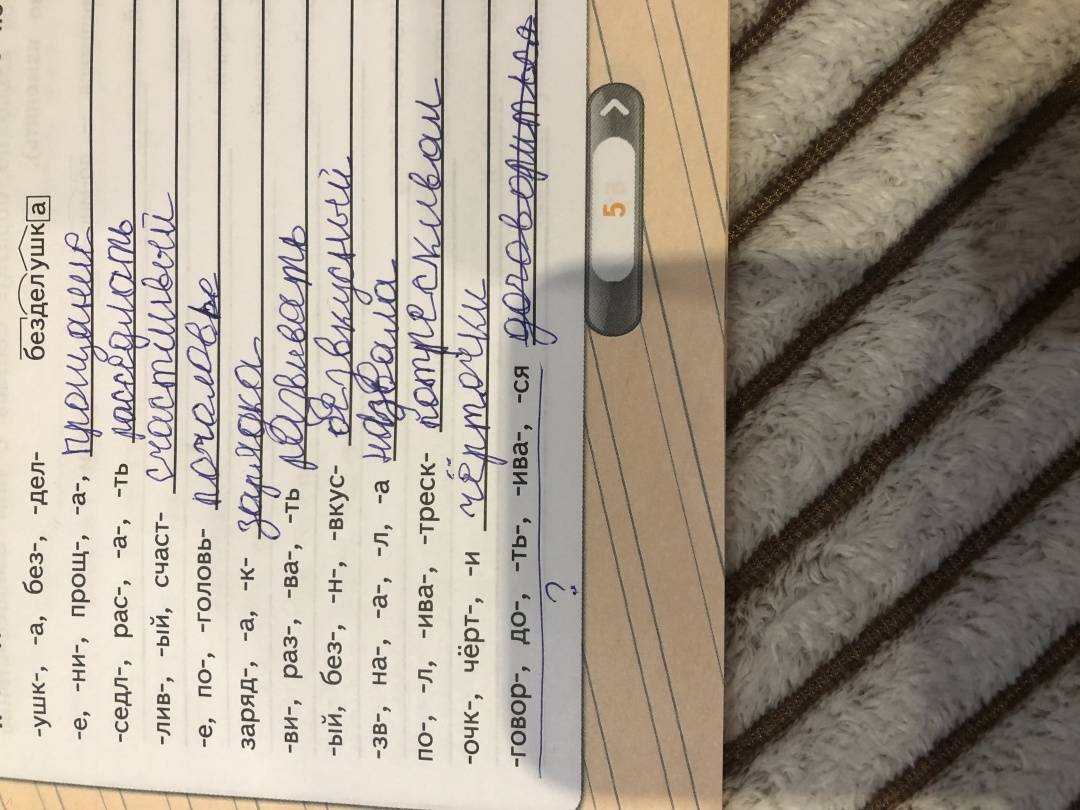 -ушк-, -а, без-, -дел- безделушка
-е, -ни-, прощ-, -а-, прощание
-седл-, рас-, -а-, -ть расседлать
-лив-, -ый, счаст- счастливый
-е, по-, -головь- поголовье
заряд-, -а, -к- зарядка
-ви-, раз-, -ва-, -ть развивать
-ый, без-, -н-, -вкус- безвкусный
-зв-, на-, -а-, -л-, -а назвала
по-, -л, -ива-, -треск- потрескивал
-очк-, чёрт-, -и чёрточки
-говор-, до-, -ть-, -ива-, -ся
?
5